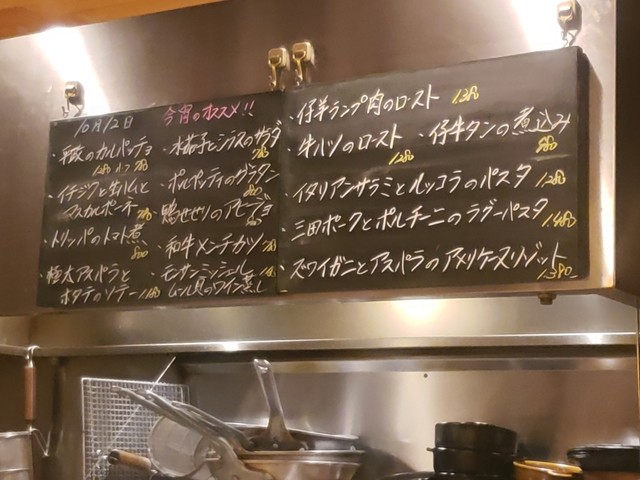 10月12日
今宵のオススメ!!
・平政のカルパッチョ
・水茄子とシラスのサラダ
・イチジクと生ハムと
マスカルポーネ
・ポルポッティのグラタン
・トリッパのトマト煮
800
・鴨せせりのアヒージョ
・極太アスパラと
ホタテのソテー
・和牛メンチカツ
・モンサンミッシェル
ムール貝のワイン蒸し
・仔羊ランプ肉のロースト 1380
・牛ハツのロースト
1280
・仔牛タンの煮込み
980
・イタリアンサラミとルッコラのパスタ 1280
・三田ポークとポルチーニのラグーパスタ 1480
・ズワイガニとアスパラのアメリケーヌリゾット
1380